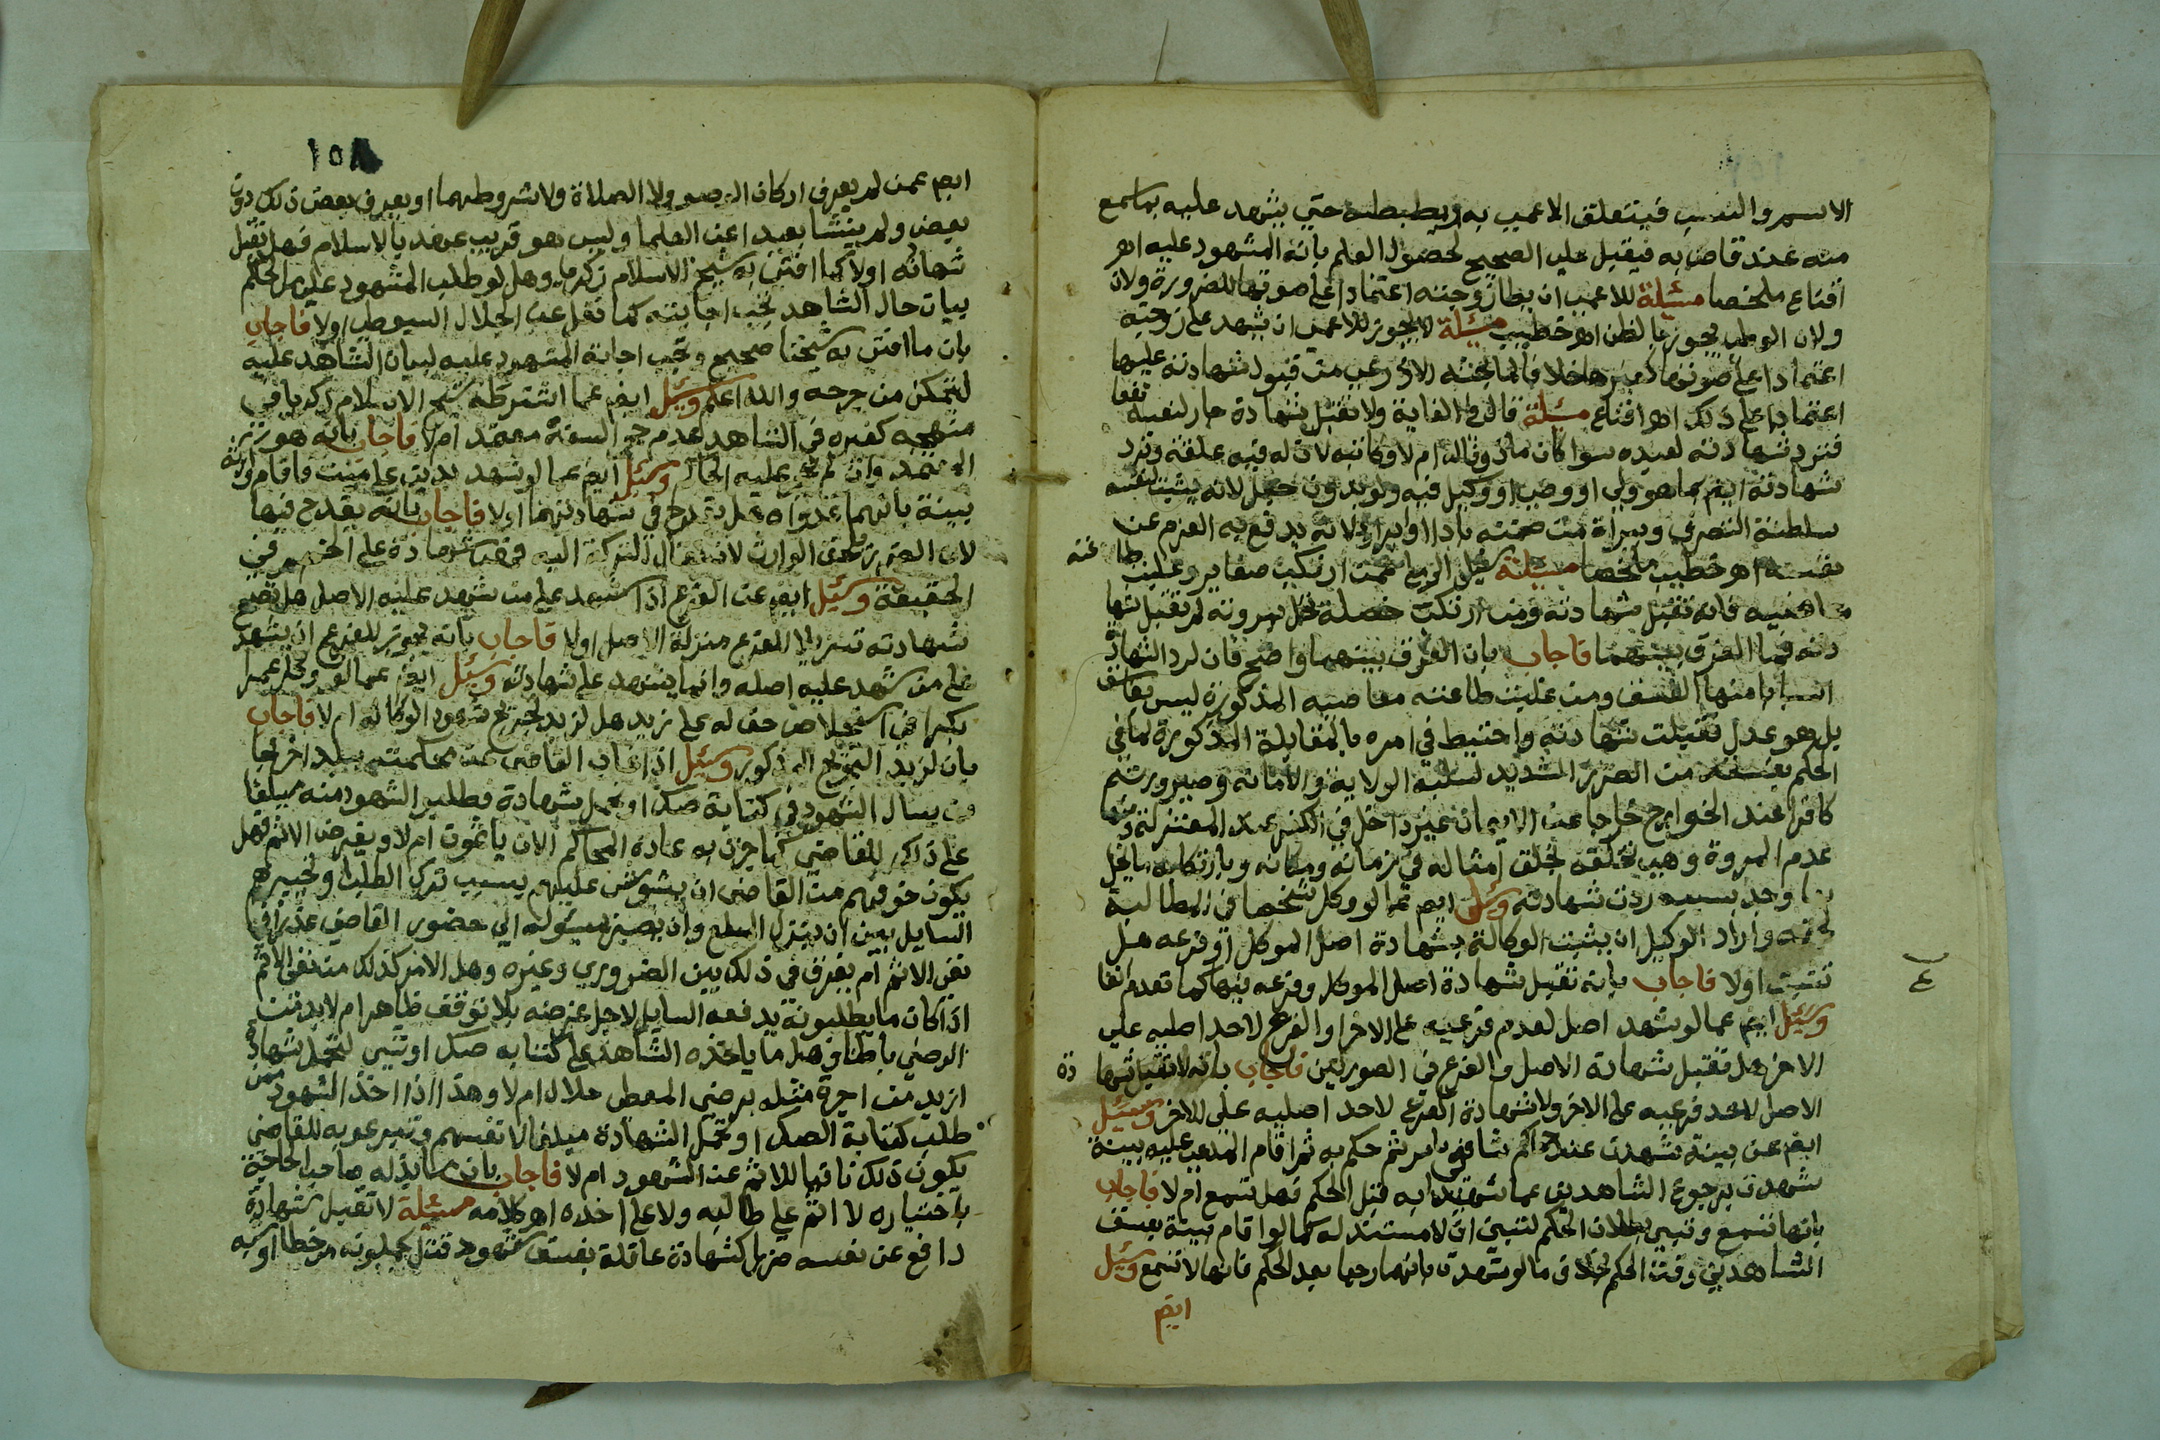 الاسم والنسب فيتعلق الاعمى به ويضبطه حتى يشهد عليه بما سمع
منه عند قاض به فيقبل على الصحيح لحصول العلم بانه المشهود عليه اهـ
اقناع ملخصا مسئلة للاعمى ان يطا زوجته اعتمادا على صوتها للضرورة ولان
ولان الوطء يجوز بالظن اهـ خطيب مسئلة لا يجوز للاعمى ان يشهد على زوجته
اعتمادا على صوتها كغيرها خلافا لما بحثه الاذرعي من قبول شهادته عليها
اعتمادا على ذلك اهـ اقناع مسئلة قال في الغاية ولا تقبل شهادة جار لنفسه نفعا
فترد شهادته لعبده سوا كان ماذونا له ام لا وكاتبه لان له فيه علقة وترد
شهادته ايضا بما هو ولي او وصي او وكيل فيه ولو بدون جعل لانه يثبت لنفسه
سلطنة التصرف وببراة من ضمنه بادا او ابرا لانه يدفع به الغرم عن
نفسه اهـ خطيب ملخصا مسئلة سئل الرملي عمن ارتكب صغاير وغلبت طا عته
معاصيه فانه تقبل شهادته ومن ارتكب خصلة تخل بمروته لم تقبل شها
دته فما الفرق بينهما فاجاب بان الفرق بينهما واضح فان لرد الشهادة
اسبابا منها الفسق ومن غلبت طاعته معاصيه المذكورة ليس بفاسق
بل هو عدل فقبلت شهادته واحتيط في امره بالمقابلة المذكورة لما في
الحكم بفسقه من الضرر الشديد لسلبه الولاية والامانة وصيرورته
كافرا عند الخوارج خارجا عن الايمان غير داخل في الكفر عند المعتزلة ومنها
عدم المروة وهي تخلقه بخلق امثاله في زمانه ومكانه وبارتكابه ما يخل
بها وجد بسببه ردت شهادته وسئل ايضا عما لو وكل شخصا في المطالبة
بحقه واراد الوكيل ان يثبت الوكالة بشهادة اصل الموكل او فرعه هل
تثبت او لا فاجاب بانه تقبل شهادة اصل الموكل وفرعه بها كما تقدم انفا
وسئل ايضا عما لو شهد اصل لعدم فرعيه على الاخر او الفرع لاحد اصليه على
الاخر هل تقبل شهادة الاصل والفرع في الصورتين فاجاب بانه لا تقبل شها دة
الاصل لاحد فرعيه على الاخر ولا شهادة الفرع لاحد اصليه على الاخر وسئل
ايضا عن بينة شهدت عند حاكم شافعي بامر ثم حكم به ثم اقام المدعى عليه بينة
شهدت برجوع الشاهدين عما شهدا به قبل الحكم فهل تسمع ام لا فاجاب
بانها تسمع وتبين بطلان الحكم لتبين ان لا مستند له كما لو اقام بينة بفسق
الشاهدين وقت الحكم بخلاف ما لو شهدت بانهما رجعا بعد الحكم فانها لا تسمع وسئل
ايضا
١٥٨
ايضا عمن لم يعرف اركان الوضوء ولا الصلاة ولا شروطهما او يعرف بعض ذلك دون
بعض ولم ينشا بعيدا عن العلما وليس هو قريب عهد بالاسلام فهل تقبل
شهادته او لا كما افتى به شيخ الاسلام زكريا وهل لو طلب المشهود عليه من الحاكم
بيان حال الشاهد تجب اجابته كما نقل عن الجلال السيوطي او لا فاجاب
بان ما افتى به شيخنا صحيح وتجب اجابة المشهود عليه لبيان الشاهد عليه
ليتمكن من جرحه والله اعلم وسئل ايضا عما اشترطه شيخ الاسلام زكريا في
منهجه كغيره في الشاهد لعدم حجر السفه معتمد ام لا فاجاب بانه هو
المعتمد وان لم عليه الحال وسئل ايضا عما لو شهد بدين على ميت فاقام وارثه
بينة بانهما عدواه هل يقدح في شهادتهما او لا فاجاب بانه يقدح فيها
لان الضرر يلحق الوارث لانتقال التركة اليه فهي شهادة على الخصم في
الحقيقة وسئل ايضا عن الفرع اذا شهد على من شهد عليه الاصل هل تصح
شهادته تنزيلا للفرع منزلة الاصل او لا فاجاب بانه يجوز للفرع ان يشهد
على من شهد عليه اصله وانما يشهد على شهادته وسئل ايضا عما لو وكل عمرا
بكرا في استخلاص حق له على زيد هل لزيد تجريح شهود الوكالة ام لا فاجاب
بان لزيد التجريح المذكور وسئل اذا غاب القاضي عن محكمته ببلد اخر فجا
من يسال الشهود في كتابة صك او تحمل شهادة فطلب الشهود منه مبلغا
على ذلك للقاضي كما جرت به عادة المحاكم الان ياثمون ام لا ويفرض الاثم فهل
يكون خوفهم من القاضي ان يشوش عليهم بسبب ترك الطلب وتخييرهم
السايل بين ان يبذل المبلغ وان يصبر بمسئوله الى حضور القاضي عذرا في
نفي الاثم ام يفرق في ذلك بين الضروري وغيره وهل الامر كذلك من نفي الاثم
اذا كان ما يطلبونه يدفعه السايل لاجل غرضه بلا توقف ظاهرا ام لا بد من
الرضى باطنا وهل ما ياخذه الشاهد على كتابة صك او شي لتحمل شهادة
ازيد من اجرة مثله برضى المعطي حلال ام لا وهذا اذا اخذ الشهود ممن
طلب كتابة الصك او تحمل الشهادة مبلغا لانفسهم وتبرعوا به للقاضي
يكون ذلك نافيا للاثم عن الشهود ام لا فاجاب بان ما يبذله صاحب الحاجة
باختياره لا اثم على طالبه ولا على اخذه اهـ كلامه مسئلة لا تقبل شهادة
دافع عن نفسه ضررا كشهادة عاقلة بفسق شهود قتل يحملونه من خطا او شبه